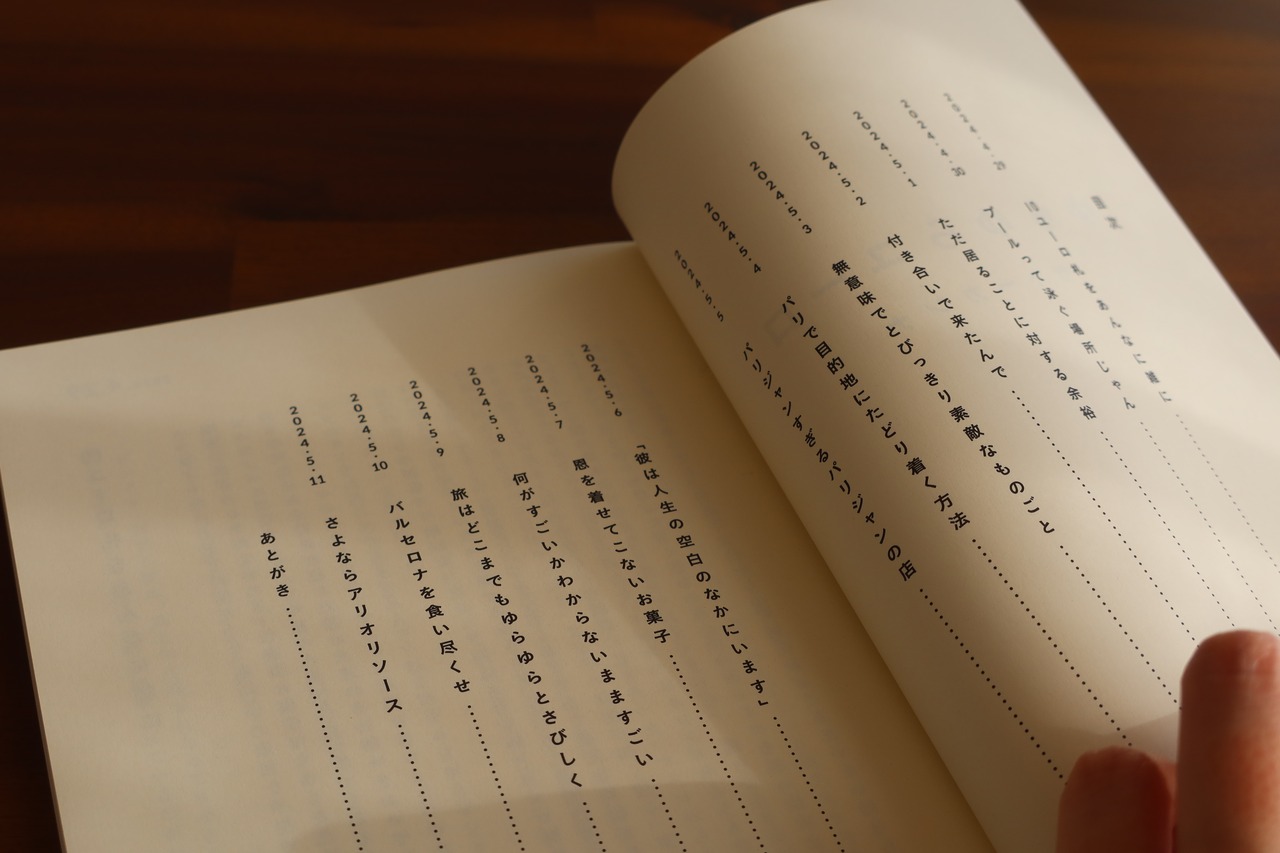 目次
2024.4.29 10ユーロ札をあんなに雑に
2024.4.30 プールって泳ぐ場所じゃん
2024.5.1 ただ居ることに対する余裕
2024.5.2 付き合いで来たんで
2024.5.3 無意味でとびっきり素敵なものごと
2024.5.4 パリで目的地にたどり着く方法
2024.5.5 パリジャンすぎるパリジャンの店
2024.5.6 「彼は人生の空白のなかにいます」
2024.5.7 恩を着せてこないお菓子
2024.5.8 何がすごいかわからないまますごい
2024.5.9 旅はどこまでもゆらゆらとさびしく
2024.5.10 バルセロナを食い尽くせ
2024.5.11 さよならアリオリソース
あとがき